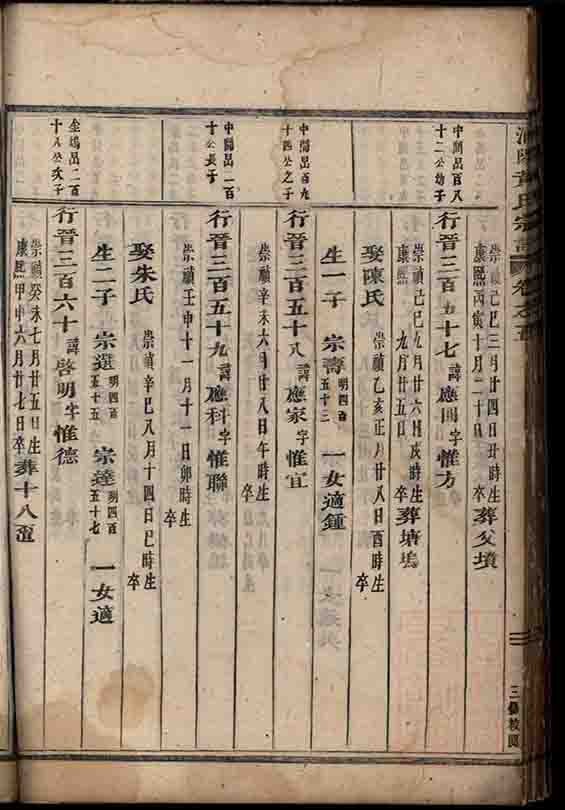 氏宗譜
三修校閱
崇禎己巳三月廿四日丑時生
康熙丙寅十月二十日 卒
葬父墳
中關出百八
十二公幼子
行晉三百五十七 諱 應 字 惟方
崇禎己巳九月廿六日戌時生
康熙 九月廿五日 卒
葬塘塢
娶陳氏 崇禎乙亥正月廿八日酉時生 卒
生一子 宗壽 明四百五十三 一女適鍾
中關出百九
十四公之子
行晉三百五十八 諱應家字惟宜
崇禎辛未六月廿八日午時生 卒
中關出一百
十公長子
行晉三百五十九 諱應科字惟聯
崇禎壬申十一月十一日卯時生 卒
娶朱氏 崇禎辛巳八月十四日巳時生 卒
生二子 宗選 明四百五十五 宗達 明四百五十七 一女適
金塢出二百
十八公次子
行晉三百六十 諱啓明字惟德
崇禎癸未七月廿五日生
康熙甲申六月廿七日卒
葬十八